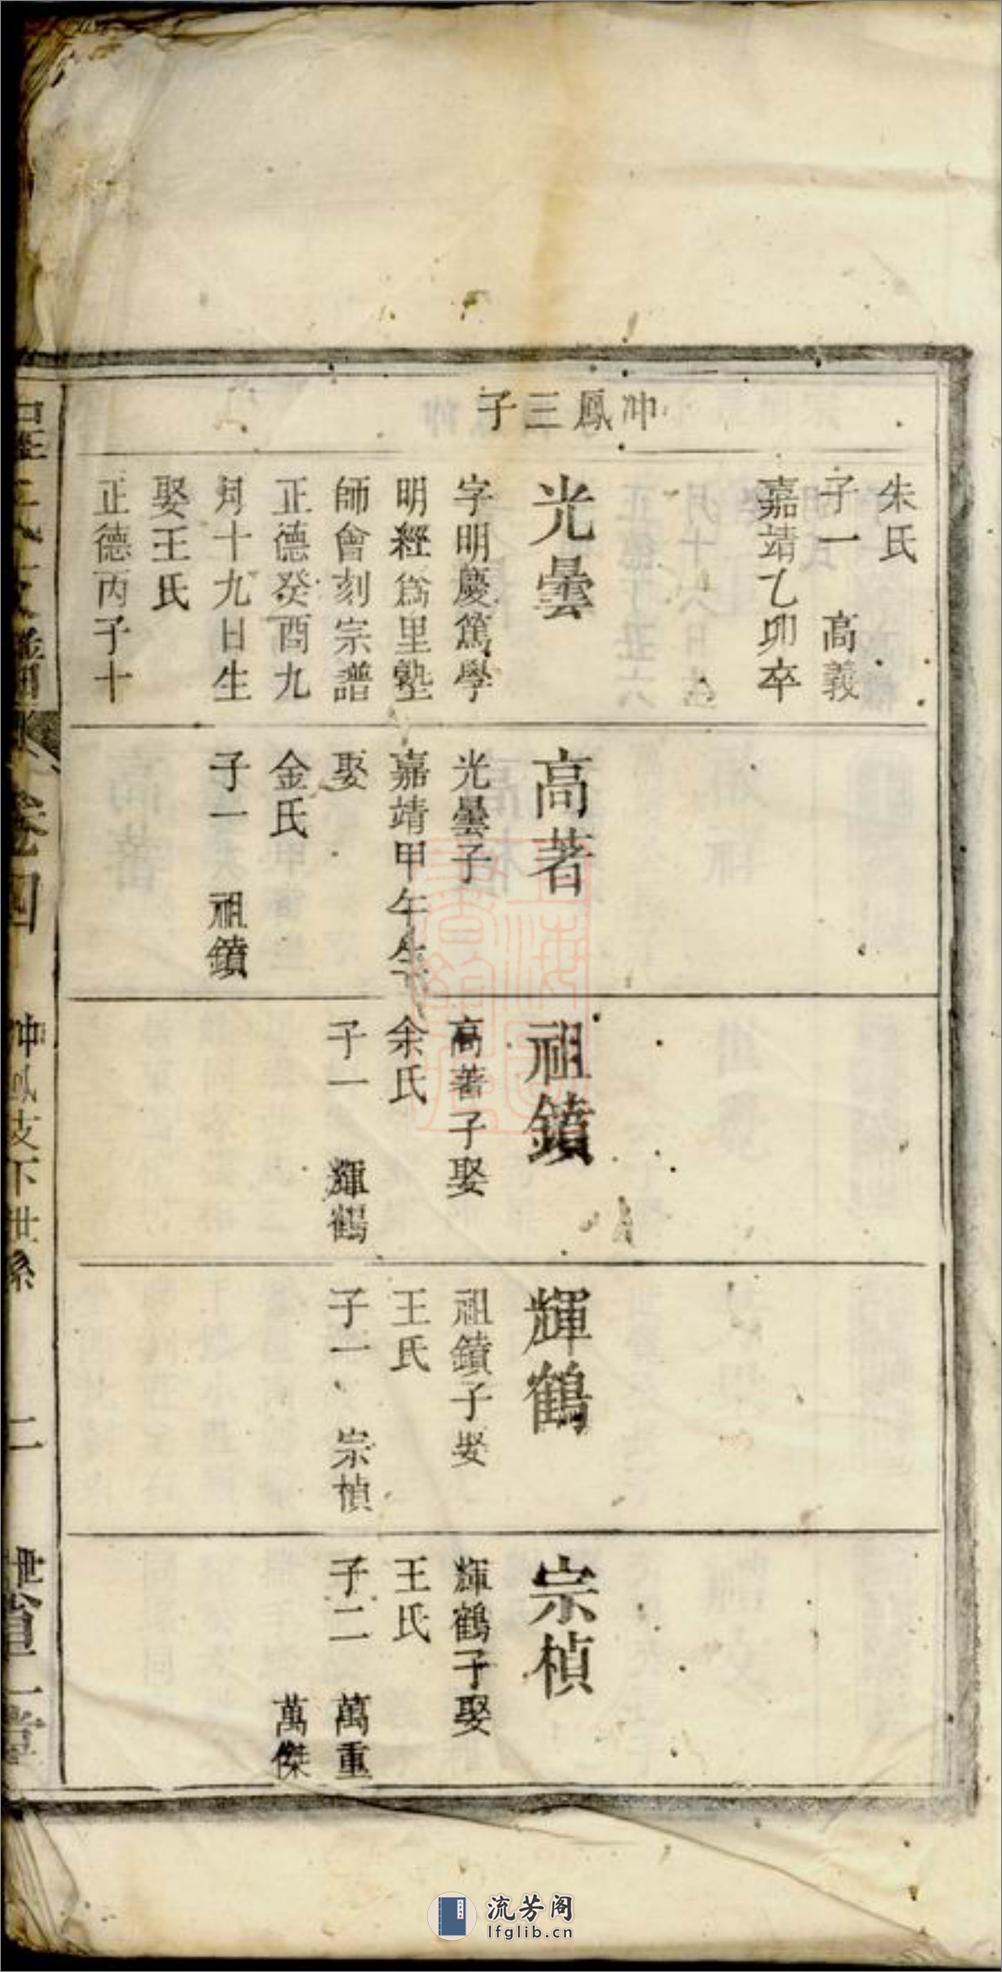 冲鳳三子
朱氏
子一 高義
嘉靖乙卯卒
光曇
字明慶篤學
明經爲里塾
師會刻宗譜
正德癸酉九
月十九日生
娶王氏
正德丙子十
高著
光曇子
嘉靖甲午生
娶
金氏
子一 祖鐼
祖鐼
高著子娶
余氏
子一 輝鶴
輝鶴
祖鐼子娶
王氏
子一 宗楨
宗楨
輝鶴子娶
王氏
子二 萬重
萬傑
卷四
冲鳳支下世系
二
流芳阁
lfglib.cn